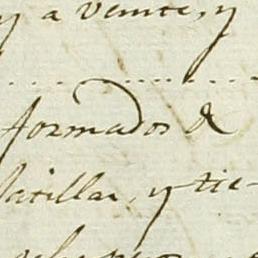 y a veinte, y
formados de
latillar, y tie-